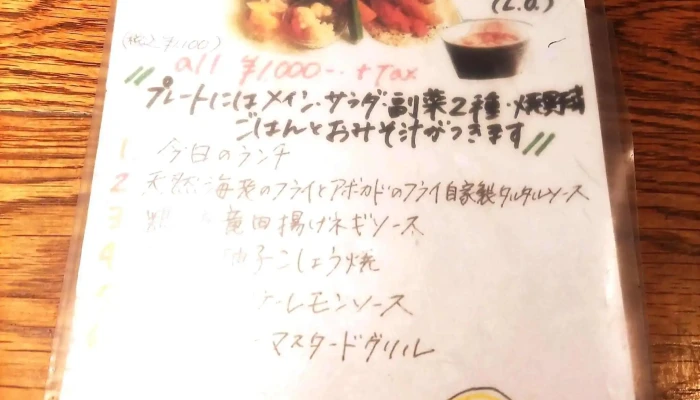 (L.O.)
(税込 ¥1100)
all ¥1,000-. + Tax
"プレートにはメイン・サラダ・副菜2種・焼野菜
ごはんとおみそ汁がつきます"
1. 今日のランチ
2 天然海老のフライとアボカドのフライ自家製タルタルソース
3 竜田揚げネギソース
4 柚子こしょう焼
レモンソース
マスタードグリル